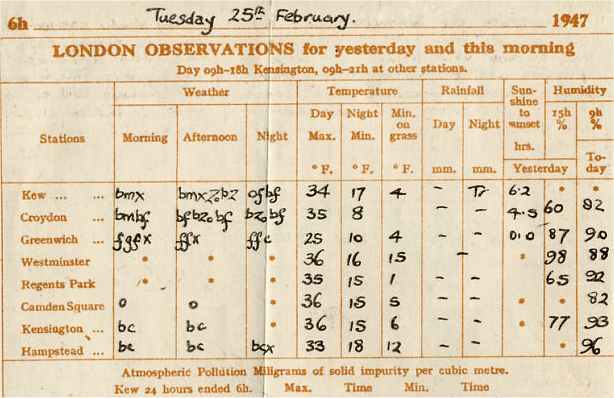 6h Tuesday 25th February. 1947
LONDON OBSERVATIONS for yesterday and this morning
Day 09h–18h Kensington, 09h–21h at other stations.
Weather Temperature Rainfall Sun-shine to sunset Humidity
Stations Morning Afternoon Night Day Max. Night Min. Min. on grass Day Night hrs. 15h % 9h %
° F. ° F. ° F. mm. mm. Yesterday To-day
Kew ... ... bmx bmxz₀bz ofbf 34 17 4 – Tr 6.2 * *
Croydon ... bmbf bfbz₀bf bz₀bf 35 8 – – 4.5 60 82
Greenwich ... fgfx ffx ffc 25 10 4 – – 0.0 87 90
Westminster * * * 36 16 15 – * 98 88
Regents Park * * * 35 15 1 – – 65 92
Camden Square o o 36 15 5 – – * * 82
Kensington ... bc bc * 36 15 6 – – * 77 93
Hampstead ... bc bc bcx 33 18 12 – – * 96
Atmospheric Pollution Miligrams of solid impurity per cubic metre.
Kew 24 hours ended 6h. Max. Time Min. Time